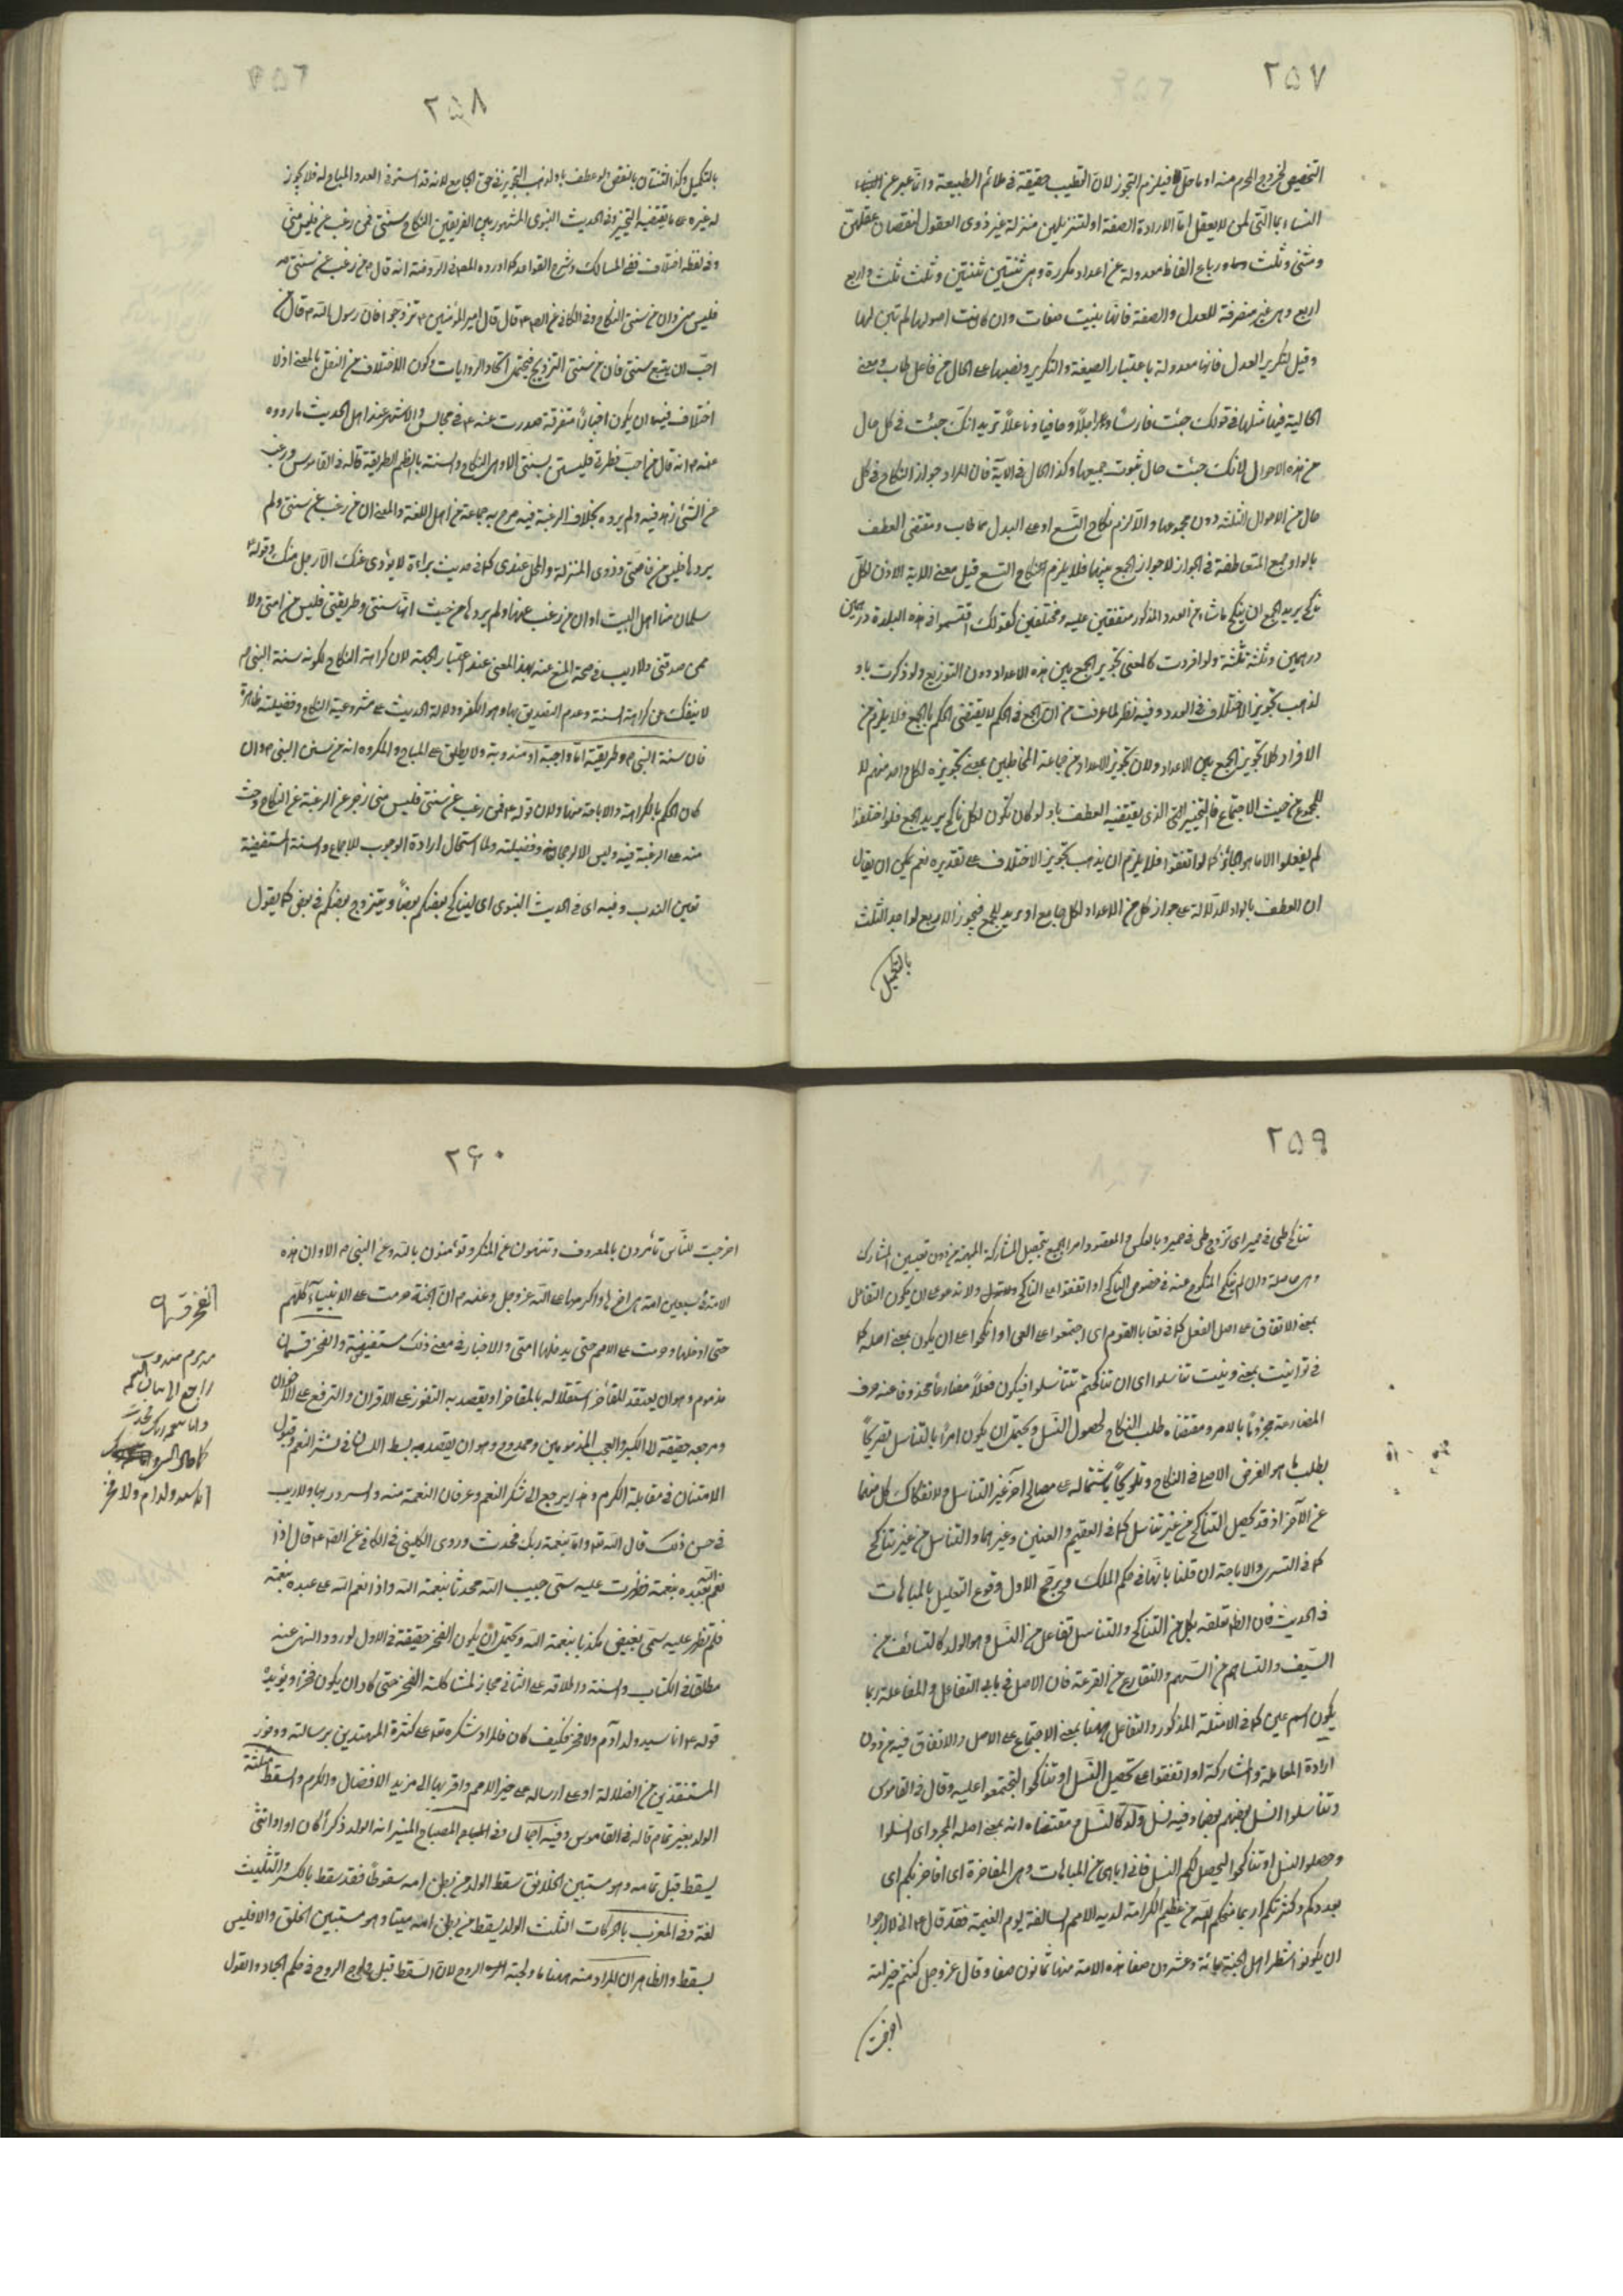 ٢٥٧
التخصيص لخروج المحرم منه او ما حل فيلزم التجوز لان الطيب حقيقة فى ملائم الطبيعة وانما عبر عن
النساء بما التى لمن لا يعقل اما لارادة الصفة او لتنزيلهن منزلة غير ذوى العقول لنقصان عقلهن
ومثنى وثلث ورباع الفاظ معدولة عن اعداد مكررة وهى ثنتين ثنتين وثلث ثلث واربع
اربع وهى غير منصرفة للعدل والصفة فانها بنيت صفات وان كانت اصولها لم تبن لها
وقيل لتكرير العدل فانها معدولة باعتبار الصيغة والتكرير ونصبها على الحال من فاعل طاب ومعنى
الحالية فيها مثلها فى قولك جئت فارسا وراجلا وحافيا وناعلا تريد انك جئت فى كل حال
من هذه الاحوال لا انك جئت حال ثبوت جميعها وكذا الحال فى الآية فان المراد جواز النكاح فى كل
حال من الاحوال الثلثة دون مجموعها والا لزم نكاح التسع او على البدل مما طاب ومقتضى العطف
بالواو جمع المتعاطفة فى الجواز لا جواز الجمع بينها فلا يلزم نكاح التسع قيل معنى الآية الاذن لكل
ناكح يريد الجمع ان ينكح ما شاء من العدد المذكور متفقين عليه ومختلفين كقولك اقتسموا هذه البلدة درهمين
درهمين وثلثة ثلثة ولو افردت كالمعنى تجويز الجمع بين هذه الاعداد دون التوزيع ولو ذكرت باو
لذهب تجويز الاختلاف فى العدد وفيه نظر لما عرفت من ان الجمع فى الحكم لا يقتضى الحكم بالجمع فلا يلزم من
الافراد تجويز الجمع بين الاعداد ولان تجويز الاعداد من جماعة المخاطبين بمعنى تجويزه لكل واحد منهم لا
للمجموع من حيث الاجتماع فالتخيير الذى يقتضيه العطف باو لو كان لكون لكل ناكح يريد الجمع فلو اختلفوا
لم يفعلوا الا ما هو الجائز كما لو اتفقوا فلا يلزم ان يذهب تجويز الاختلاف على تقديره نعم يمكن ان يقال
ان العطف بالواو للدلالة على جواز كل من الاعداد لكل جامع او مريد للجمع فيجوز الاربع لواجد الثلث
بالتكميل
٢٥٨
بالتكميل وكذا الثنتان بالنقص ولو عطف باو لذهب التجويز فى حق الجامع لانه قد استوفى العدد المباح له فلا يجوز
له غيره على ما يقتضيه التخيير وفى الحديث النبوى المشهور بين الفريقين النكاح سنتى فمن رغب عن سنتى فليس منى
وفى لفظه اختلاف ففى المسالك وشرح القواعد كما اورده المص فى الروضة انه قال من رغب عن سنتى
فليس منى وان من سنتى النكاح وفى الكافى عن الص ع قال قال امير المؤمنين ع تزوجوا فان رسول الله ص قال من
احب ان يتبع سنتى فان من سنتى التزويج فيحتمل اتحاد الروايات وكون الاختلاف من النقل بالمعنى اذ لا
اختلاف فيه او ان يكون اخبارا متفرقة صدرت عنه ص فى مجالس والاشهر عند اهل الحديث ما رووه
عنه ص انه قال من احب فطرتى فليستن بسنتى الا وهى النكاح والسنة بالضم الطريقة قاله فى القاموس ورغب
عن الشئ زهد فيه ولم يرده بخلاف الرغبة فيه صرح به جماعة من اهل اللغة والمعنى ان من رغب عن سنتى ولم
يردها فليس من خاصتى وذوى المنزلة والمحل عندى كما فى حديث براءة لا يؤدى عنك الا رجل منك وقوله
سلمان منا اهل البيت او ان من رغب عنها ولم يردها من حيث انها سنتى وطريقتى فليس من امتى ولا
ممن صدقنى ولا ريب فى صحة المنع عنه بهذا المعنى عند اعتبار الحيثية لان كراهة النكاح لكونه سنة النبى ص
لا ينفك عن كراهة السنة وعدم التصديق بها وهو الكفر ودلالة الحديث على مشروعية النكاح وفضيلته ظاهرة
فان سنة النبى ص وطريقته اما واجبة او مندوبة ولا يطلق على المباح والمكروه انه من سنن النبى ص وان
كان الحكم بالكراهة والاباحة منها ولان قوله ص فمن رغب عن سنتى فليس منى زجر عن الرغبة عن النكاح وحث
منه على الرغبة فيه وليس الا لرجحانه وفضيلته ولما استحال ارادة الوجوب للاجماع والسنة المستفيضة
تعين الندب وفيه اى فى الحديث النبوى اى ليناكح بعضكم بعضا ويتزوج بعضكم فى بعض كما يقول
٢٥٩
تناكح طى فى حمير اى تزوج طى فى حمير وبالعكس والمقصود امر الجميع بتحصيل المشاركة المبهمة من دون تعيين المشارك
وهى حاصلة وان لم ينكح المنكوح عنه فى خصوص الناكح او اتفقوا على النكاح ولا ندعو على ان يكون التفاعل
بمعنى الاتفاق على اصل الفعل كما فى تعايا القوم اى اجتمعوا على العى او انكحوا على ان يكون بمعنى اصله كما
فى توانيت بمعنى ونيت تناسلوا اى ان تناكحتم تتناسلوا فيكون فعلا مضارعا محذوفا عنه حرف
المضارعة مجزوما بالامر ومقتضاه طلب النكاح لحصول النسل ويحتمل ان يكون امرا بالتناسل تصريحا
بطلب ما هو الغرض الاصلى فى النكاح وتلويحا باشتماله على مصالح آخر غير التناسل ولانفكاك كل منهما
عن الآخر اذ قد يحصل التناكح من غير تناسل كما فى العقيم والعنين وغيرهما والتناسل من غير تناكح
كما فى التسرى والاباحة ان قلنا بانها فى حكم الملك ويرجح الاول وقوع التعليل بالمباهات
فى الحديث فان الظ تعلقه بكل من التناكح والتناسل تفاعل من النسل وهو الولد كالتسائف من
السيف والتساهم من السهم والتقارع من القرعة فان الاصل فى بابى التفاعل والمفاعلة ربما
يكون اسم عين كما فى الامثلة المذكور والتفاعل ههنا بمعنى الاجتماع على الاصل والاتفاق فيه من دون
ارادة المعاملة والمشاركة او اتفقوا على تحصيل النسل او تناكحوا لتجتمعوا عليه وقال فى القاموس
وتناسلوا انسل بعضهم بعضا وفيه نسل ولد كانسل ومقتضاه انه بمعنى اصله المجرد اى انسلوا
وحصلوا النسل او تناكحوا ليحصل لكم النسل فانى اباهى من المباهات وهى المفاخرة اى افاخر بكم اى
بعددكم وكثرتكم او بما منحكم الله من عظيم الكرامة لديه الامم السالفة يوم القيمة فقد قال ص انى لارجوا
ان يكونوا شطر اهل الجنة مائة وعشرون صفا هذه الامة منها ثمانون صفا وقال عز وجل كنتم خير امة
اخرجت
٢٦٠
اخرجت للناس تأمرون بالمعروف وتنهون عن المنكر وتؤمنون بالله وعن النبى ص الا وان هذه
الامة سبعين امة هى اخرها واكرمها على الله عز وجل وعنه ص ان الجنة حرمت على الانبياء كلهم
حتى ادخلها وحرمت على الامم حتى يدخلها امتى والاخبار فى معنى ذلك مستفيضة والفخر قسمان
مذموم وهو ان يعتقد المفاخر استقلاله بالمفاخر او يقصد به التفوز على الاقران والترفع على الاخوان
ومرجعه حقيقة الى الكبر والعجب المذمومين وممدوح وهو ان يقصد به بسط اللسان فى نشر النعم وقبول
الامتنان فى مقابلة الكرم وهذا يرجع الى شكر النعم وعرفان النعمة منه والسرور بها ولا ريب
فى حسن ذلك قال الله تع واما بنعمة ربك فحدث وروى الكلينى فى الكافى عن الص ع قال اذا
انعم الله على عبده بنعمة فظهرت عليه سمى حبيب الله محدثا بنعمة الله واذا انعم الله على عبده بنعمة
فلم تظهر عليه سمى بغيض الله مكذبا بنعمة الله ويحتمل ان يكون الفخر حقيقة فى الاول لورود النهى عنه
مطلقا فى الكتاب والسنة واطلاقه على الثانى مجاز لمشاكلة الفخر حتى كاد ان يكون فخرا ويؤيده
قوله ص انا سيد ولد آدم ولا فخر فكيف كان فالمراد شكره تع على كثرة المهتدين برسالته ووفور
المستنقذين من الضلالة او على ارساله على خير الامم واقربها الى مزيد الافضال والكرم والسقط مثلثة
الولد بغير تمام قاله فى القاموس وفيه اجمال وفى المصباح المنير انه الولد ذكرا كان او انثى
يسقط قبل تمامه وهو مستبين الخلق سقط الولد من بطن امه سقوطا فقد سقط بالكسر والتثليث
لغة وفى المغرب بالحركات الثلث الولد يسقط من بطن امه ميتا وهو مستبين الخلق والا فليس
بسقط والظاهر ان المراد منه ههنا ما ولجته الروح لان السقط قبل ولوج الروح فى حكم الجماد والقول
الفخر قسمان